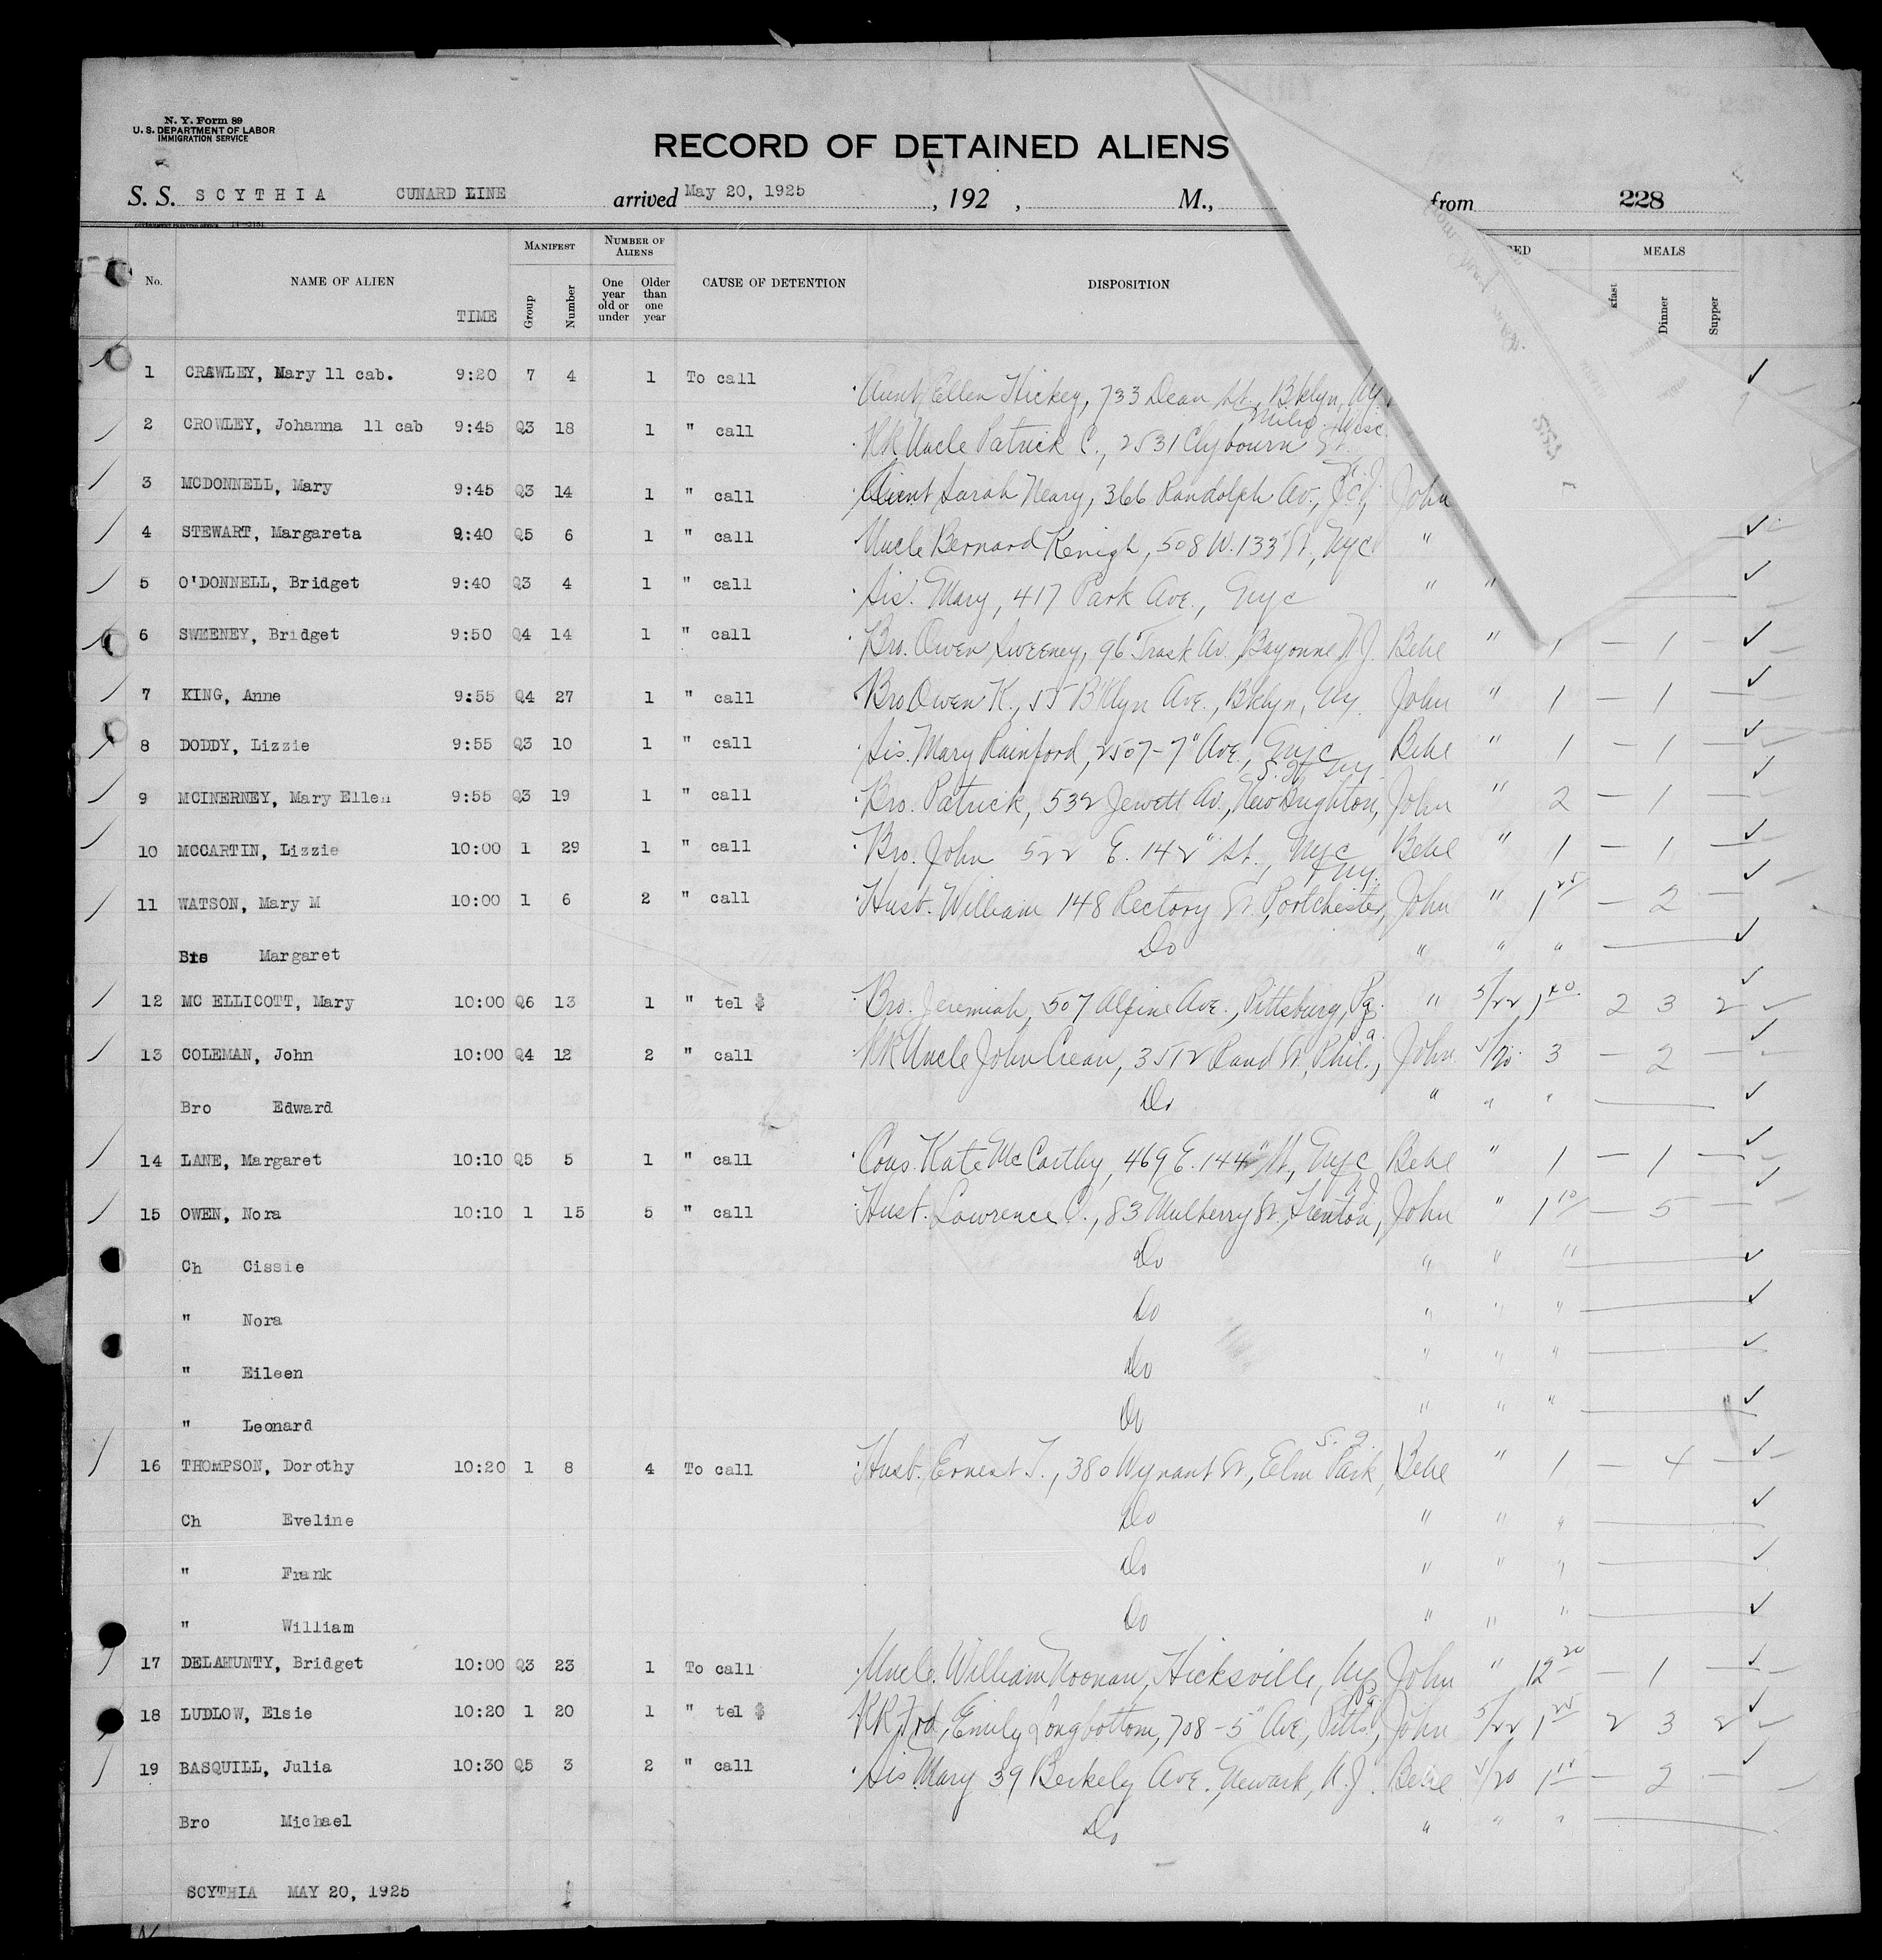 N. Y. Form 89
U. S. DEPARTMENT OF LABOR
IMMIGRATION SERVICE
RECORD OF DETAINED ALIENS
S. S. SCYTHIA CUNARD LINE arrived May 20, 1925 , 192 , M., from 228
No. NAME OF ALIEN TIME MANIFEST Group Number NUMBER OF ALIENS One year old or under Older than one year CAUSE OF DETENTION DISPOSITION MEALS Dinner Supper
1 CRAWLEY, Mary 11 cab. 9:20 7 4 1 To call Aunt Ellen Hickey, 733 Dean St., Bklyn, Ny ✓
2 CROWLEY, Johanna 11 cab 9:45 Q3 18 1 " call RR Uncle Patrick C., 2531 Clybourn St. Milw. Wisc.
3 MCDONNELL, Mary 9:45 Q3 14 1 " call Aunt Sarah Neary, 366 Randolph Av., J.C., N.J. John
4 STEWART, Margareta 9:40 Q5 6 1 " call Uncle Bernard Kenigh, 508 W. 133" St, Nyc " ✓
5 O'DONNELL, Bridget 9:40 Q3 4 1 " call Sis. Mary, 417 Park Ave., Nyc " " ✓
6 SWEENEY, Bridget 9:50 Q4 14 1 " call Bro. Owen Sweeney, 96 Trask Av., Bayonne N.J. Behe " 1 — 1 — ✓
7 KING, Anne 9:55 Q4 27 1 " call Bro Owen K., 55 Bklyn Ave., Bklyn, Ny. John " 1 — 1 — ✓
8 DODDY, Lizzie 9:55 Q3 10 1 " call Sis. Mary Rainford, 2507-7" Ave., Nyc Behe " 1 — 1 — ✓
9 MCINERNEY, Mary Ellen 9:55 Q3 19 1 " call Bro. Patrick, 532 Jewett Av., New Brighton, S.I. Ny. John " 2 — 1 — ✓
10 MCCARTIN, Lizzie 10:00 1 29 1 " call Bro. John 522 E. 142" St., Nyc Behe " 1 — 1 — ✓
11 WATSON, Mary M 10:00 1 6 2 " call Husb. William 148 Rectory St., Portchester, Ny. John " 1 25 — 2 — ✓
Sis Margaret Do " " " ✓
12 MC ELLICOTT, Mary 10:00 Q6 13 1 " tel $ Bro. Jeremiah, 507 Alpine Ave., Pittsburg, Pa. " 5/22 1 40 2 3 2 ✓
13 COLEMAN, John 10:00 Q4 12 2 " call RR Uncle John Crean, 3512 Rand St., Phil., Pa. John 5/20 3 — 2 — ✓
Bro Edward Do " " " ✓
14 LANE, Margaret 10:10 Q5 5 1 " call Cous. Kate McCarthy, 469 E. 144" St, Nyc Behe " 1 — 1 — ✓
15 OWEN, Nora 10:10 1 15 5 " call Husb. Lawrence O., 83 Mulberry St., Trenton, N.J. John " 1 10 — 5 — ✓
Ch Cissie Do " " " ✓
" Nora Do " " " ✓
" Eileen Do " " " ✓
" Leonard Do " " " ✓
16 THOMPSON, Dorothy 10:20 1 8 4 To call Husb. Ernest T., 380 Wynant St, Elm Park, S.I. Behe " 1 — 4 — ✓
Ch Eveline Do " " " ✓
" Frank Do " " " ✓
" William Do " " " ✓
17 DELAHUNTY, Bridget 10:00 Q3 23 1 To call Uncle William Noonan, Hicksville, Ny John " 12 20 — 1 — ✓
18 LUDLOW, Elsie 10:20 1 20 1 " tel $ RR Frd, Emily Longbottom, 708-5" Ave, Pitts, Pa John 5/22 1 25 2 3 2 ✓
19 BASQUILL, Julia 10:30 Q5 3 2 " call Sis Mary 39 Berkely Ave. Newark, N.J. Behe 5/20 1 15 — 2 — ✓
Bro Michael Do " " "
SCYTHIA MAY 20, 1925